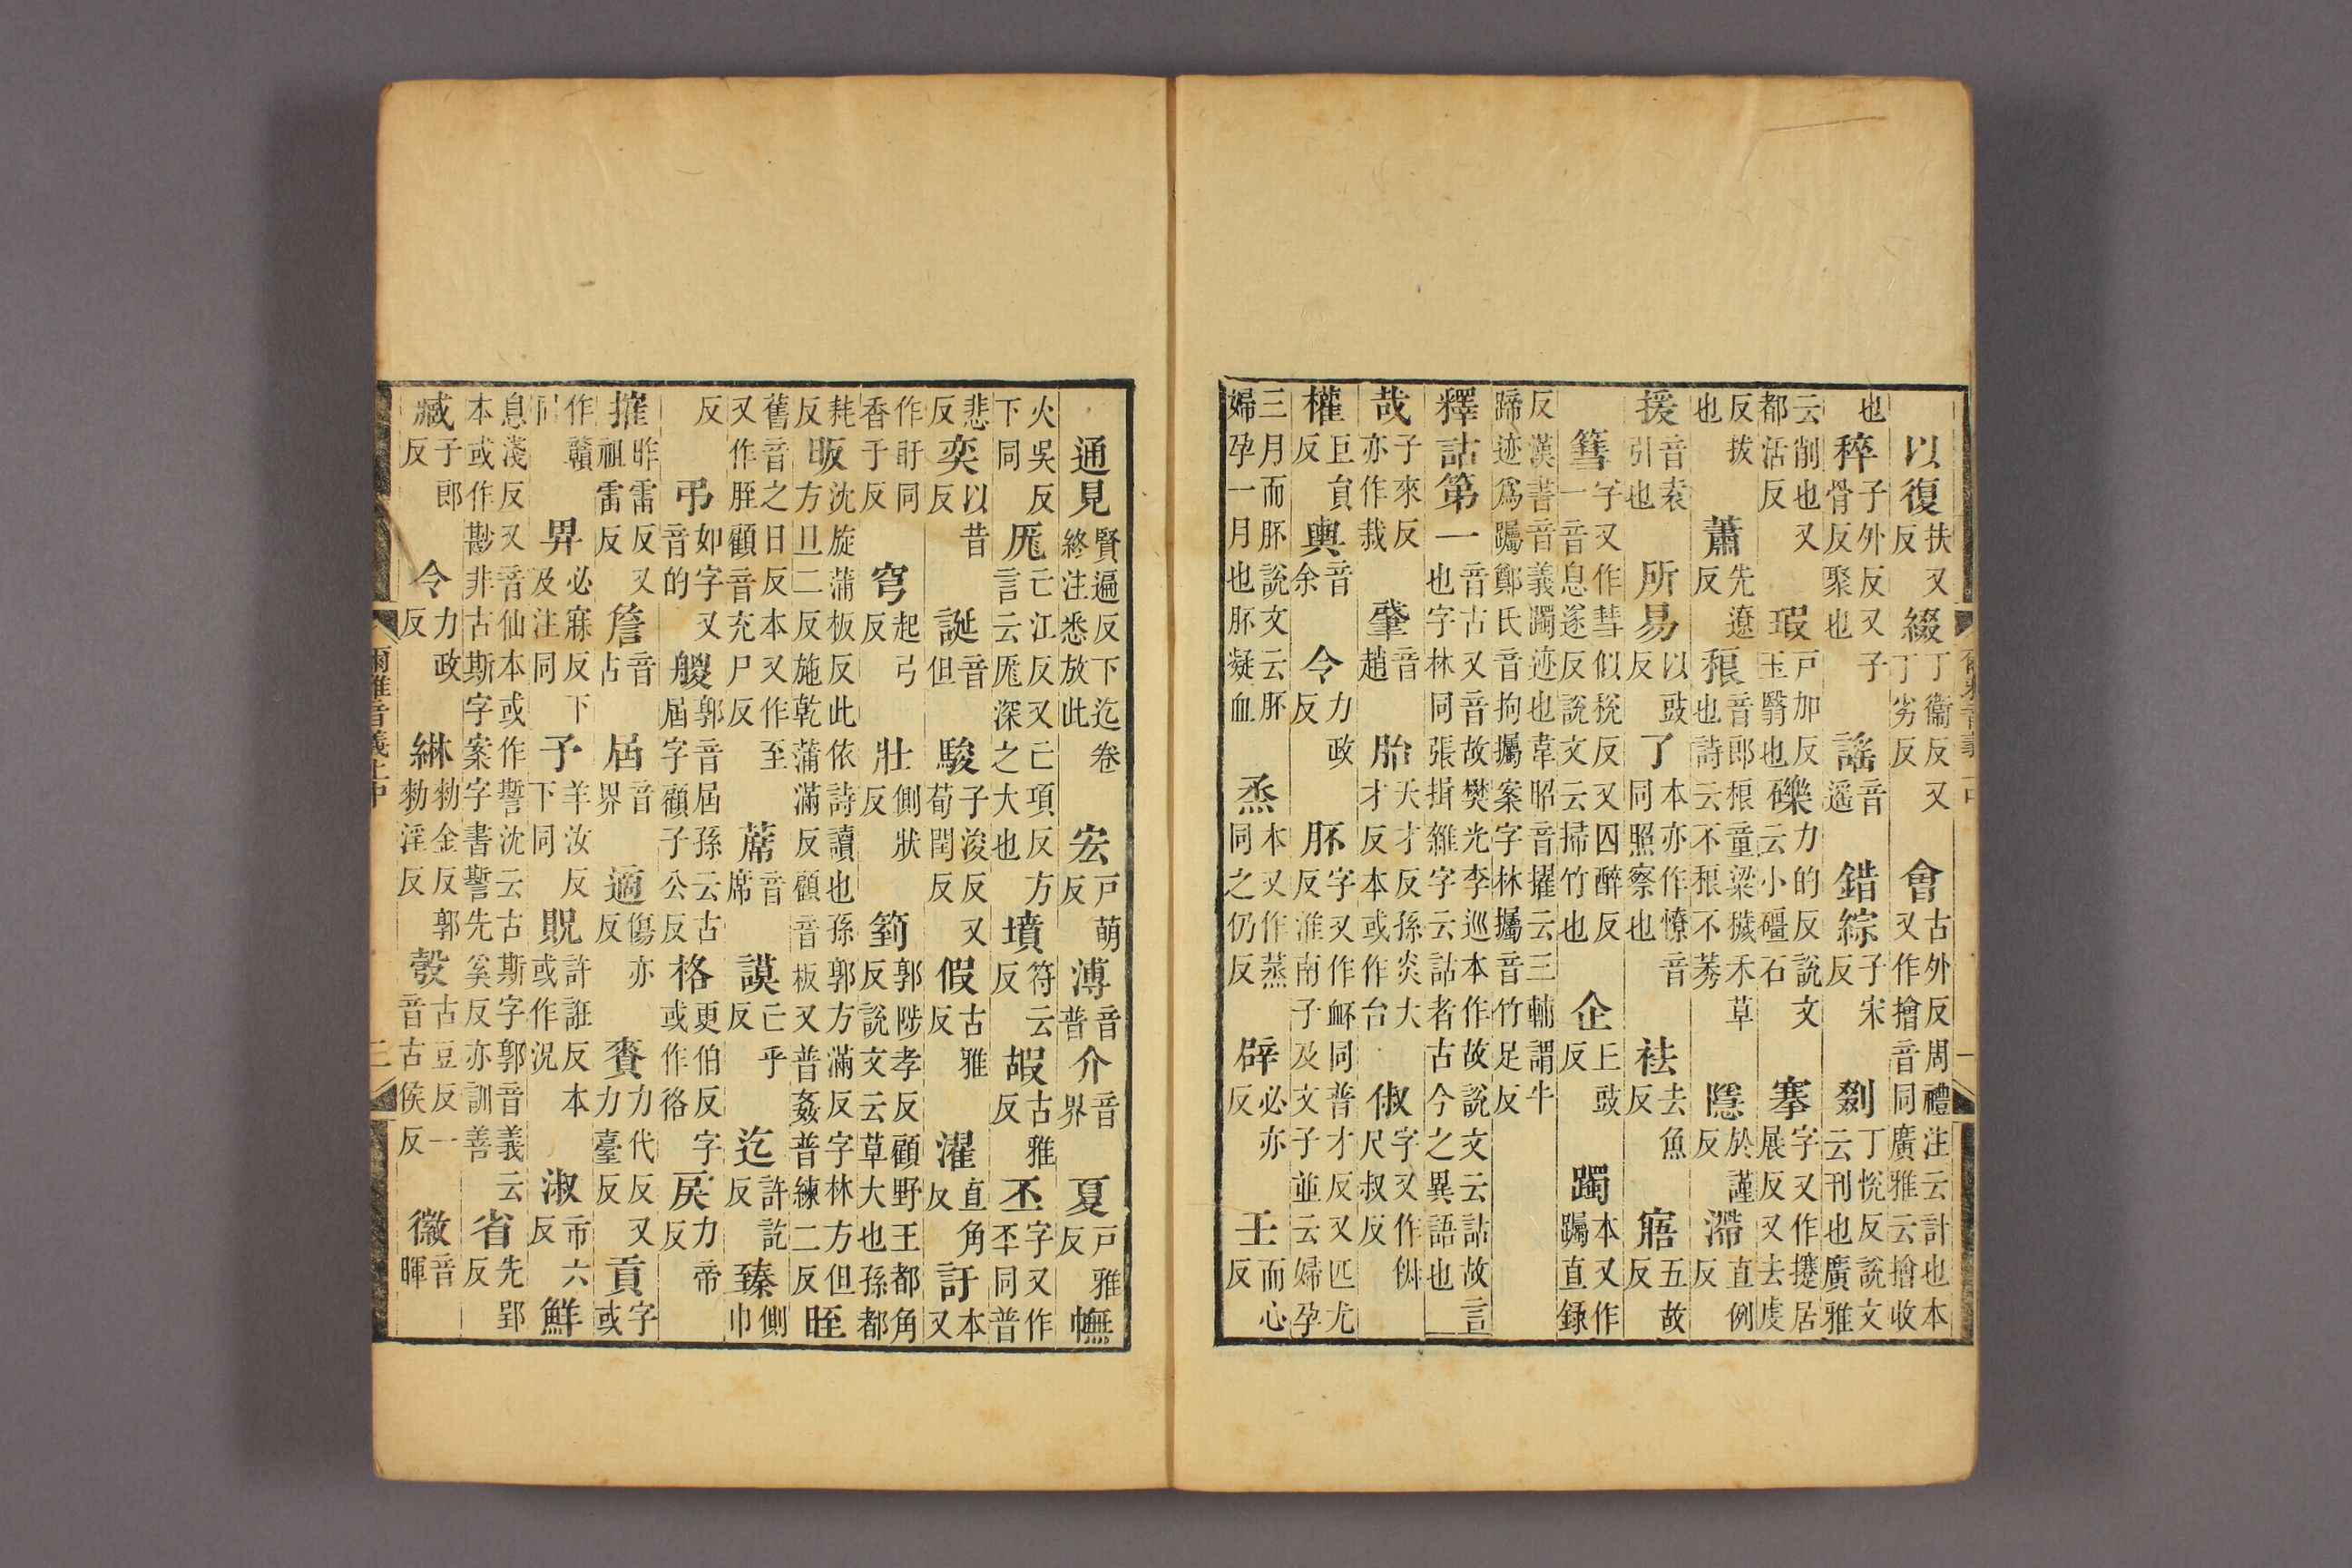 以復扶又反綴丁衞反又丁劣反會古外反周禮注云計也本又作檜音同廣雅云檜收
也稡子外反又子骨反聚也謡音遥錯綜子宋反剟丁悅反說文云刊也廣雅
云削也又都活反瑕戸加反玉翳也礫力的反說文云小礓石搴字又作攓居展反又去虔
反拔也蕭先遼反稂音郎稂童粱穢禾草也詩云不稂不莠隱於謹反滯直例反
援音袁引也所易以豉反了本亦作憭音同照察也袪去魚反寤五故反
篲字又作彗似稅反又囚醉反一音息遂反說文云掃竹也企丘豉反躅本又作躅直録
反漢書音義躅迹也韋昭音擢云三輔謂牛蹄迹爲躅鄭氏音拘攦案字林攦音竹足反
釋詁第一音古又音故樊光李巡本作故說文云詁故言也字林同張揖雜字云詁者古今之異語也
哉子來反亦作栽肇音趙胎天才反孫炎大才反本或作台俶字又作㑐尺叔反
權巨貟反輿音余令力政反肧字又作衃同普才反又匹尤反淮南子及文子並云婦孕
三月而肧說文云肧婦孕一月也肧凝血烝本又作蒸同之仍反辟必亦反壬而心反
爾雅音義上中 一
通見賢遍反下迄卷終注悉放此宏戸萌反溥音普介音界夏戸雅反幠
火吳反下同厖亡江反又亡項反方言云厖深之大也墳符云反嘏古雅反丕字又作㔻同普
悲反奕以昔反誕音但駿子浚反又荀閏反假古雅反濯直角反訏本又
作盱同香于反穹起弓反壯側狀反箌郭陟孝反顧野王都角反說文云草大也孫都
耗反昄沈旋蒲板反此依詩讀也孫郭方滿反字林方但方旦二反施乾蒲滿反顧音板又普姦普練二反晊
舊音之日反本又作至又作胵顧音充尸反蓆音席謨亡乎反迄許訖反臻側巾
反弔如字又音的艐郭音屆孫云古屆字顧子公反格更伯反字或作㣟戾力帝反
摧昨雷反又祖雷反詹音占屆音界適傷亦反賚力代反又力臺反貢字或
作贛同畀必寐反下及注同予羊汝反下同貺許誑反本或作况淑市六反鮮
息淺反又音仙本或作誓沈云古斯字郭音義云本或作尠非古斯字案字書誓先奚反亦訓善省先郢反
臧子郎反令力政反綝勑金反郭勑淫反彀古豆反一音古侯反徽音暉
爾雅音義上中 二